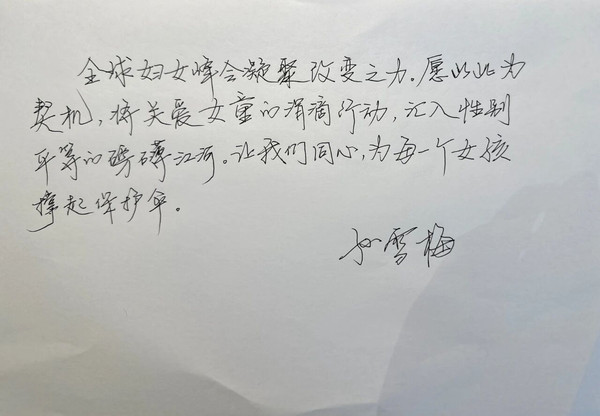 全球妇女峰会凝聚改变之力。愿以此为
契机，将关爱女童的涓滴行动，汇入性别
平等的磅礴江河。让我们同心，为每一个女孩
撑起保护伞。
孙雪梅